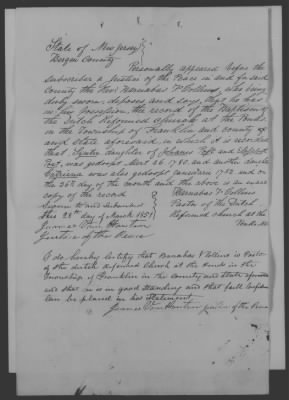 State of New Jersey }
Bergen County }
Personally appeared before the
subscriber a Justice of the Peace in and for said
County the Rev. Barnabas V Collins, who being
duly sworn, deposes and says, that he has
in his Possession, the record of the Baptisms of
the Dutch Reformed Church at the Ponds
in the Township of Franklin and county of
and State aforesaid in which it is recorded
that daughter of and
Post, was gedoopt 26. 1780. and another daughter
Catriena was also gedoopt 1782 and on
the 26th day of the month and the above is an exact
copy of the record Barnabas V Collins
Sworn to and subscribed Pastor of the Dutch
this 28th day of March 1851 Reformed church at the
Ponds
Justice of the Peace
I do hereby certify that Barnabas V Collins is Pastor
of the Dutch Reformed Church at the Ponds in the
Township of Franklin in the County and State aforesaid
and that is in good standing and that full confidence
can be placed in his Statement.
Justice of the Peace